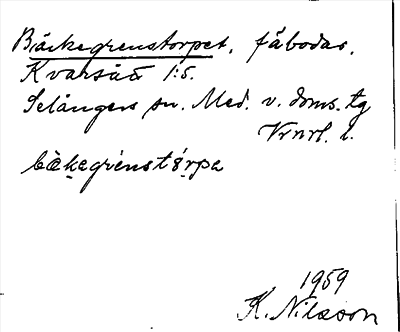 Bäckegrenstorpet, fäbodar.
Kvarsätt 1:5.
Selångers sn. Med. v. doms. tg
Vrnrl. l.
bäkagrénstórpa
1959
K. Nilsson